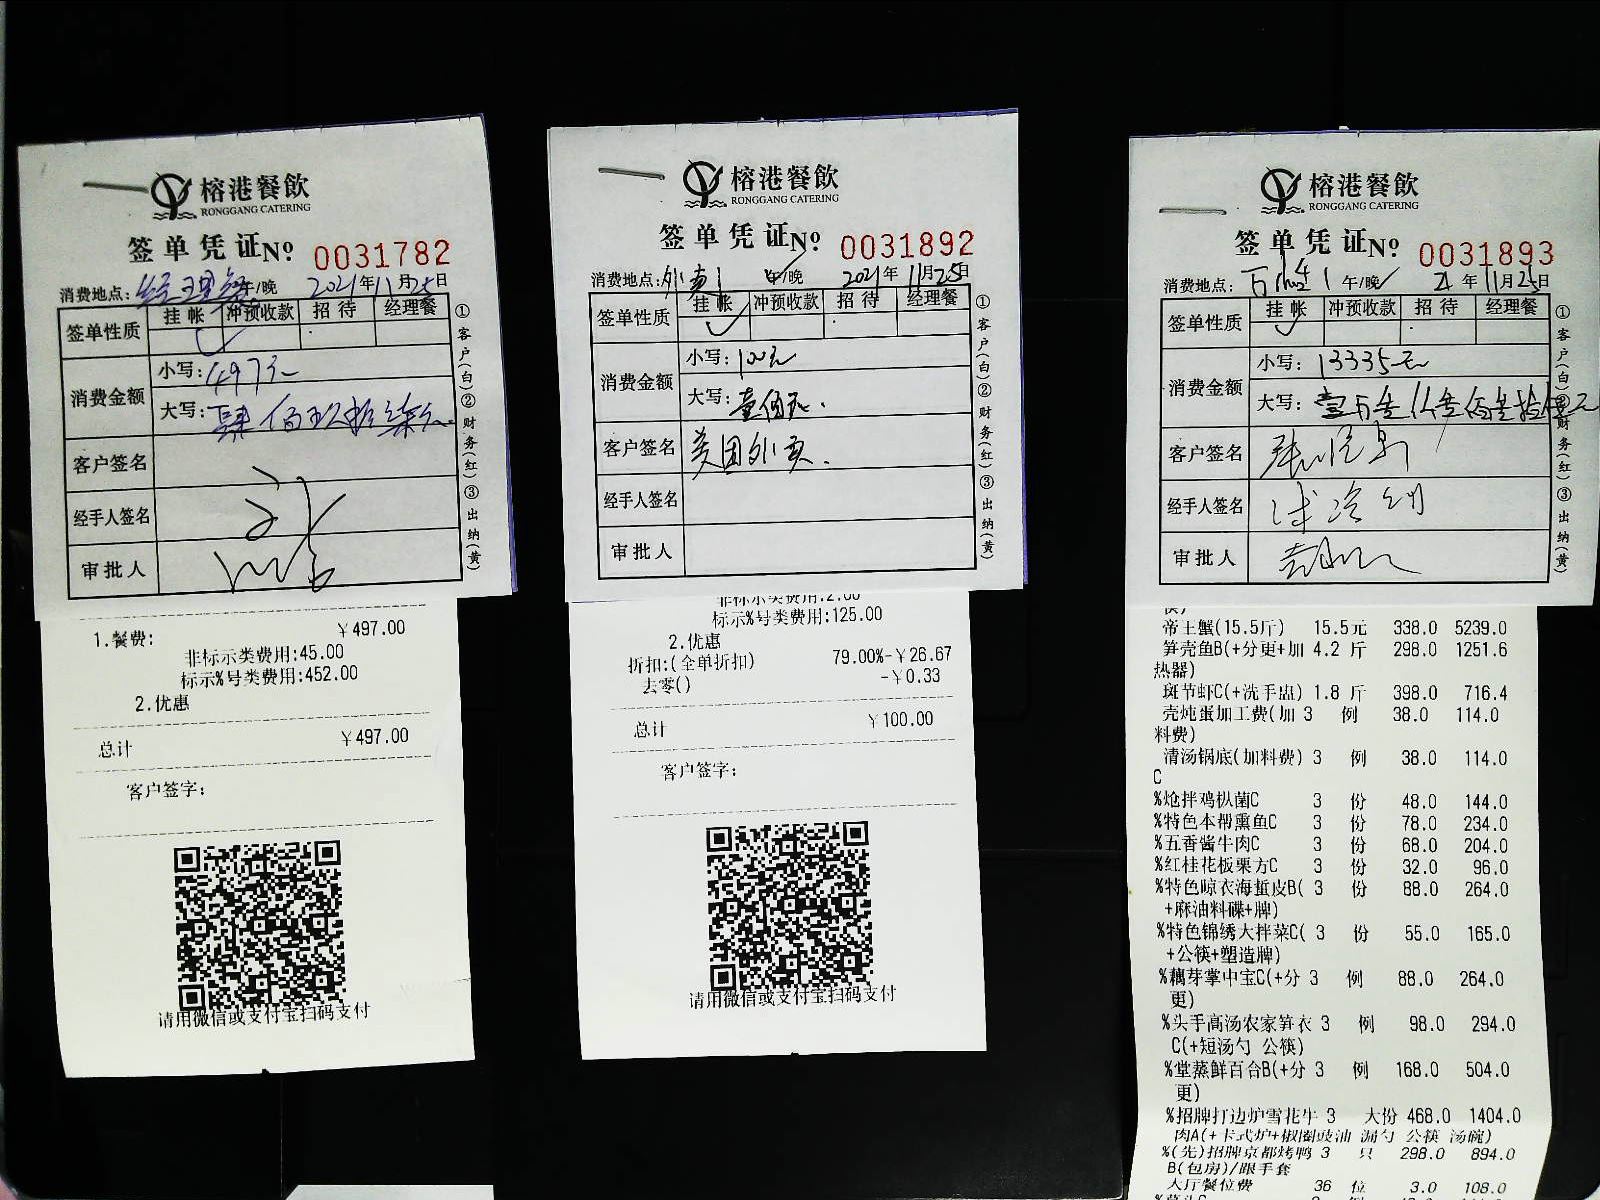 榕港餐飲
RONGGANG CATERING
签单凭证№ 0031782
消费地点: 经理餐 午/晚 2021年11月25日
签单性质 挂帐 冲预收款 招待 经理餐
消费金额 小写: 497元
大写: 肆佰玖拾柒元
客户签名
经手人签名
审批人
①客户(白)②财务(红)③出纳(黄)
1.餐费: ￥497.00
非标示类费用:45.00
标示%号类费用:452.00
2.优惠
总计 ￥497.00
客户签字:
请用微信或支付宝扫码支付
榕港餐飲
RONGGANG CATERING
签单凭证№ 0031892
消费地点: 外卖 午/晚 2021年11月25日
签单性质 挂帐 冲预收款 招待 经理餐
消费金额 小写: 100元
大写: 壹佰元.
客户签名 美团外卖.
经手人签名
审批人
①客户(白)②财务(红)③出纳(黄)
非标示类费用:2.00
标示%号类费用:125.00
2.优惠
折扣:(全单折扣) 79.00%-￥26.67
去零() -￥0.33
总计 ￥100.00
客户签字:
请用微信或支付宝扫码支付
榕港餐飲
RONGGANG CATERING
签单凭证№ 0031893
消费地点: 午/晚 21年11月25日
签单性质 挂帐 冲预收款 招待 经理餐
消费金额 小写: 13335元
大写:
客户签名
经手人签名
审批人
①客户(白) 财务(红)③出纳(黄)
帝王蟹(15.5斤) 15.5元 338.0 5239.0
笋壳鱼B(+分更+加 4.2 斤 298.0 1251.6
热器)
斑节虾C(+洗手盅) 1.8 斤 398.0 716.4
壳炖蛋加工费(加 3 例 38.0 114.0
料费)
清汤锅底(加料费) 3 例 38.0 114.0
C
%炝拌鸡枞菌C 3 份 48.0 144.0
%特色本帮熏鱼C 3 份 78.0 234.0
%五香酱牛肉C 3 份 68.0 204.0
%红桂花板栗方C 3 份 32.0 96.0
%特色晾衣海蜇皮B( 3 份 88.0 264.0
+麻油料碟+牌)
%特色锦绣大拌菜C( 3 份 55.0 165.0
+公筷+塑造牌)
%藕芽掌中宝C(+分 3 例 88.0 264.0
更)
%头手高汤农家笋衣 3 例 98.0 294.0
C(+短汤勺 公筷)
%堂蒸鲜百合B(+分 3 例 168.0 504.0
更)
%招牌打边炉雪花牛 3 大份 468.0 1404.0
肉A(+卡式炉+椒圈豉油 漏勺 公筷 汤碗)
%(先)招牌京都烤鸭 3 只 298.0 894.0
B(包房)/跟手套
大厅餐位费 36 位 3.0 108.0